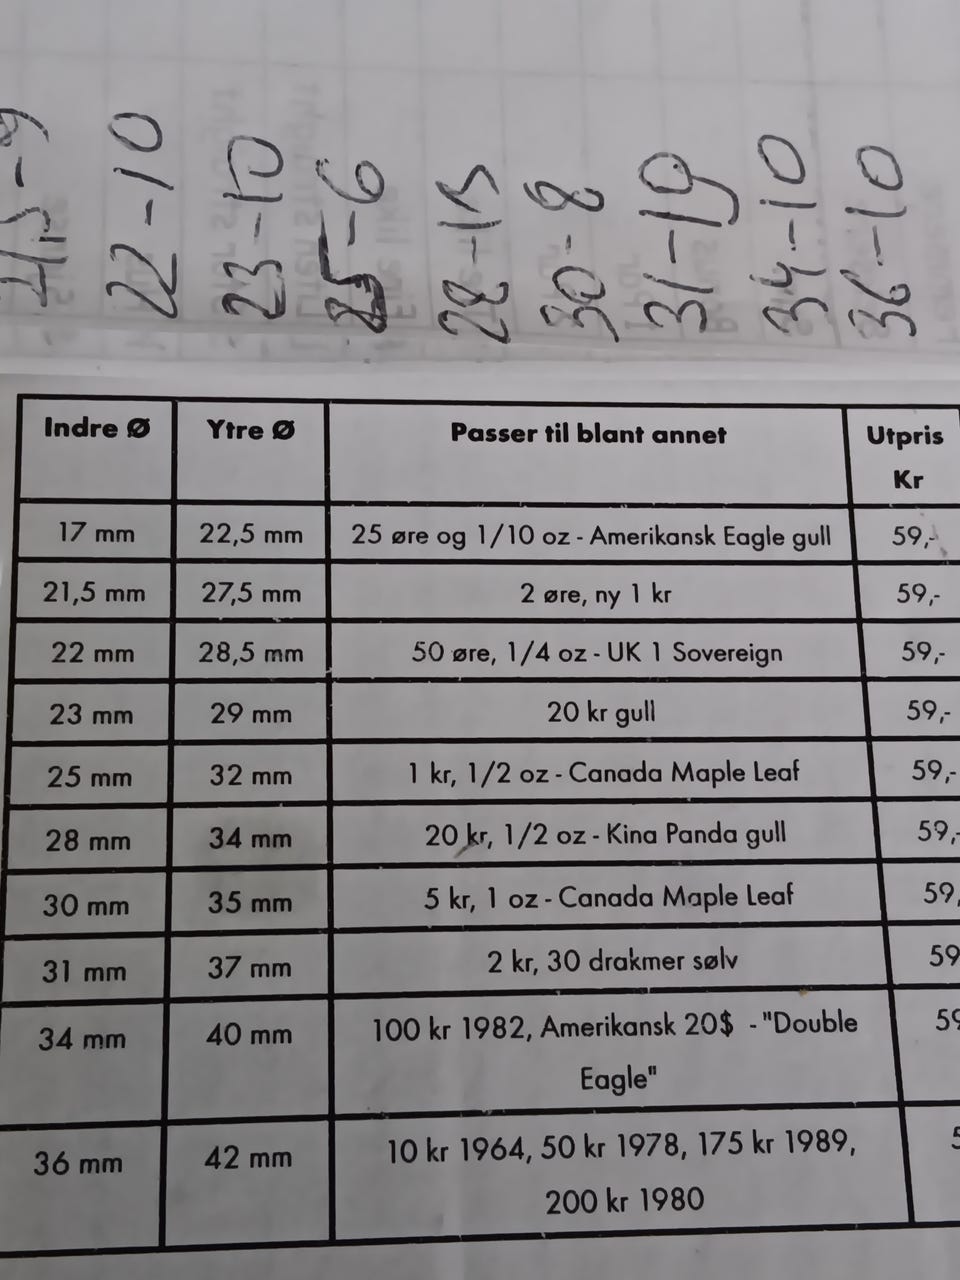 22-10
23-10
25-6
28-
30-8
31-19
34-10
36-10
Indre Ø Ytre Ø Passer til blant annet Utpris
Kr
17 mm 22,5 mm 25 øre og 1/10 oz - Amerikansk Eagle gull 59,-
21,5 mm 27,5 mm 2 øre, ny 1 kr 59,-
22 mm 28,5 mm 50 øre, 1/4 oz - UK 1 Sovereign 59,-
23 mm 29 mm 20 kr gull 59,-
25 mm 32 mm 1 kr, 1/2 oz - Canada Maple Leaf 59,-
28 mm 34 mm 20 kr, 1/2 oz - Kina Panda gull 59,-
30 mm 35 mm 5 kr, 1 oz - Canada Maple Leaf 59,
31 mm 37 mm 2 kr, 30 drakmer sølv 59
34 mm 40 mm 100 kr 1982, Amerikansk 20$ - "Double 59
Eagle"
36 mm 42 mm 10 kr 1964, 50 kr 1978, 175 kr 1989, 5
200 kr 1980